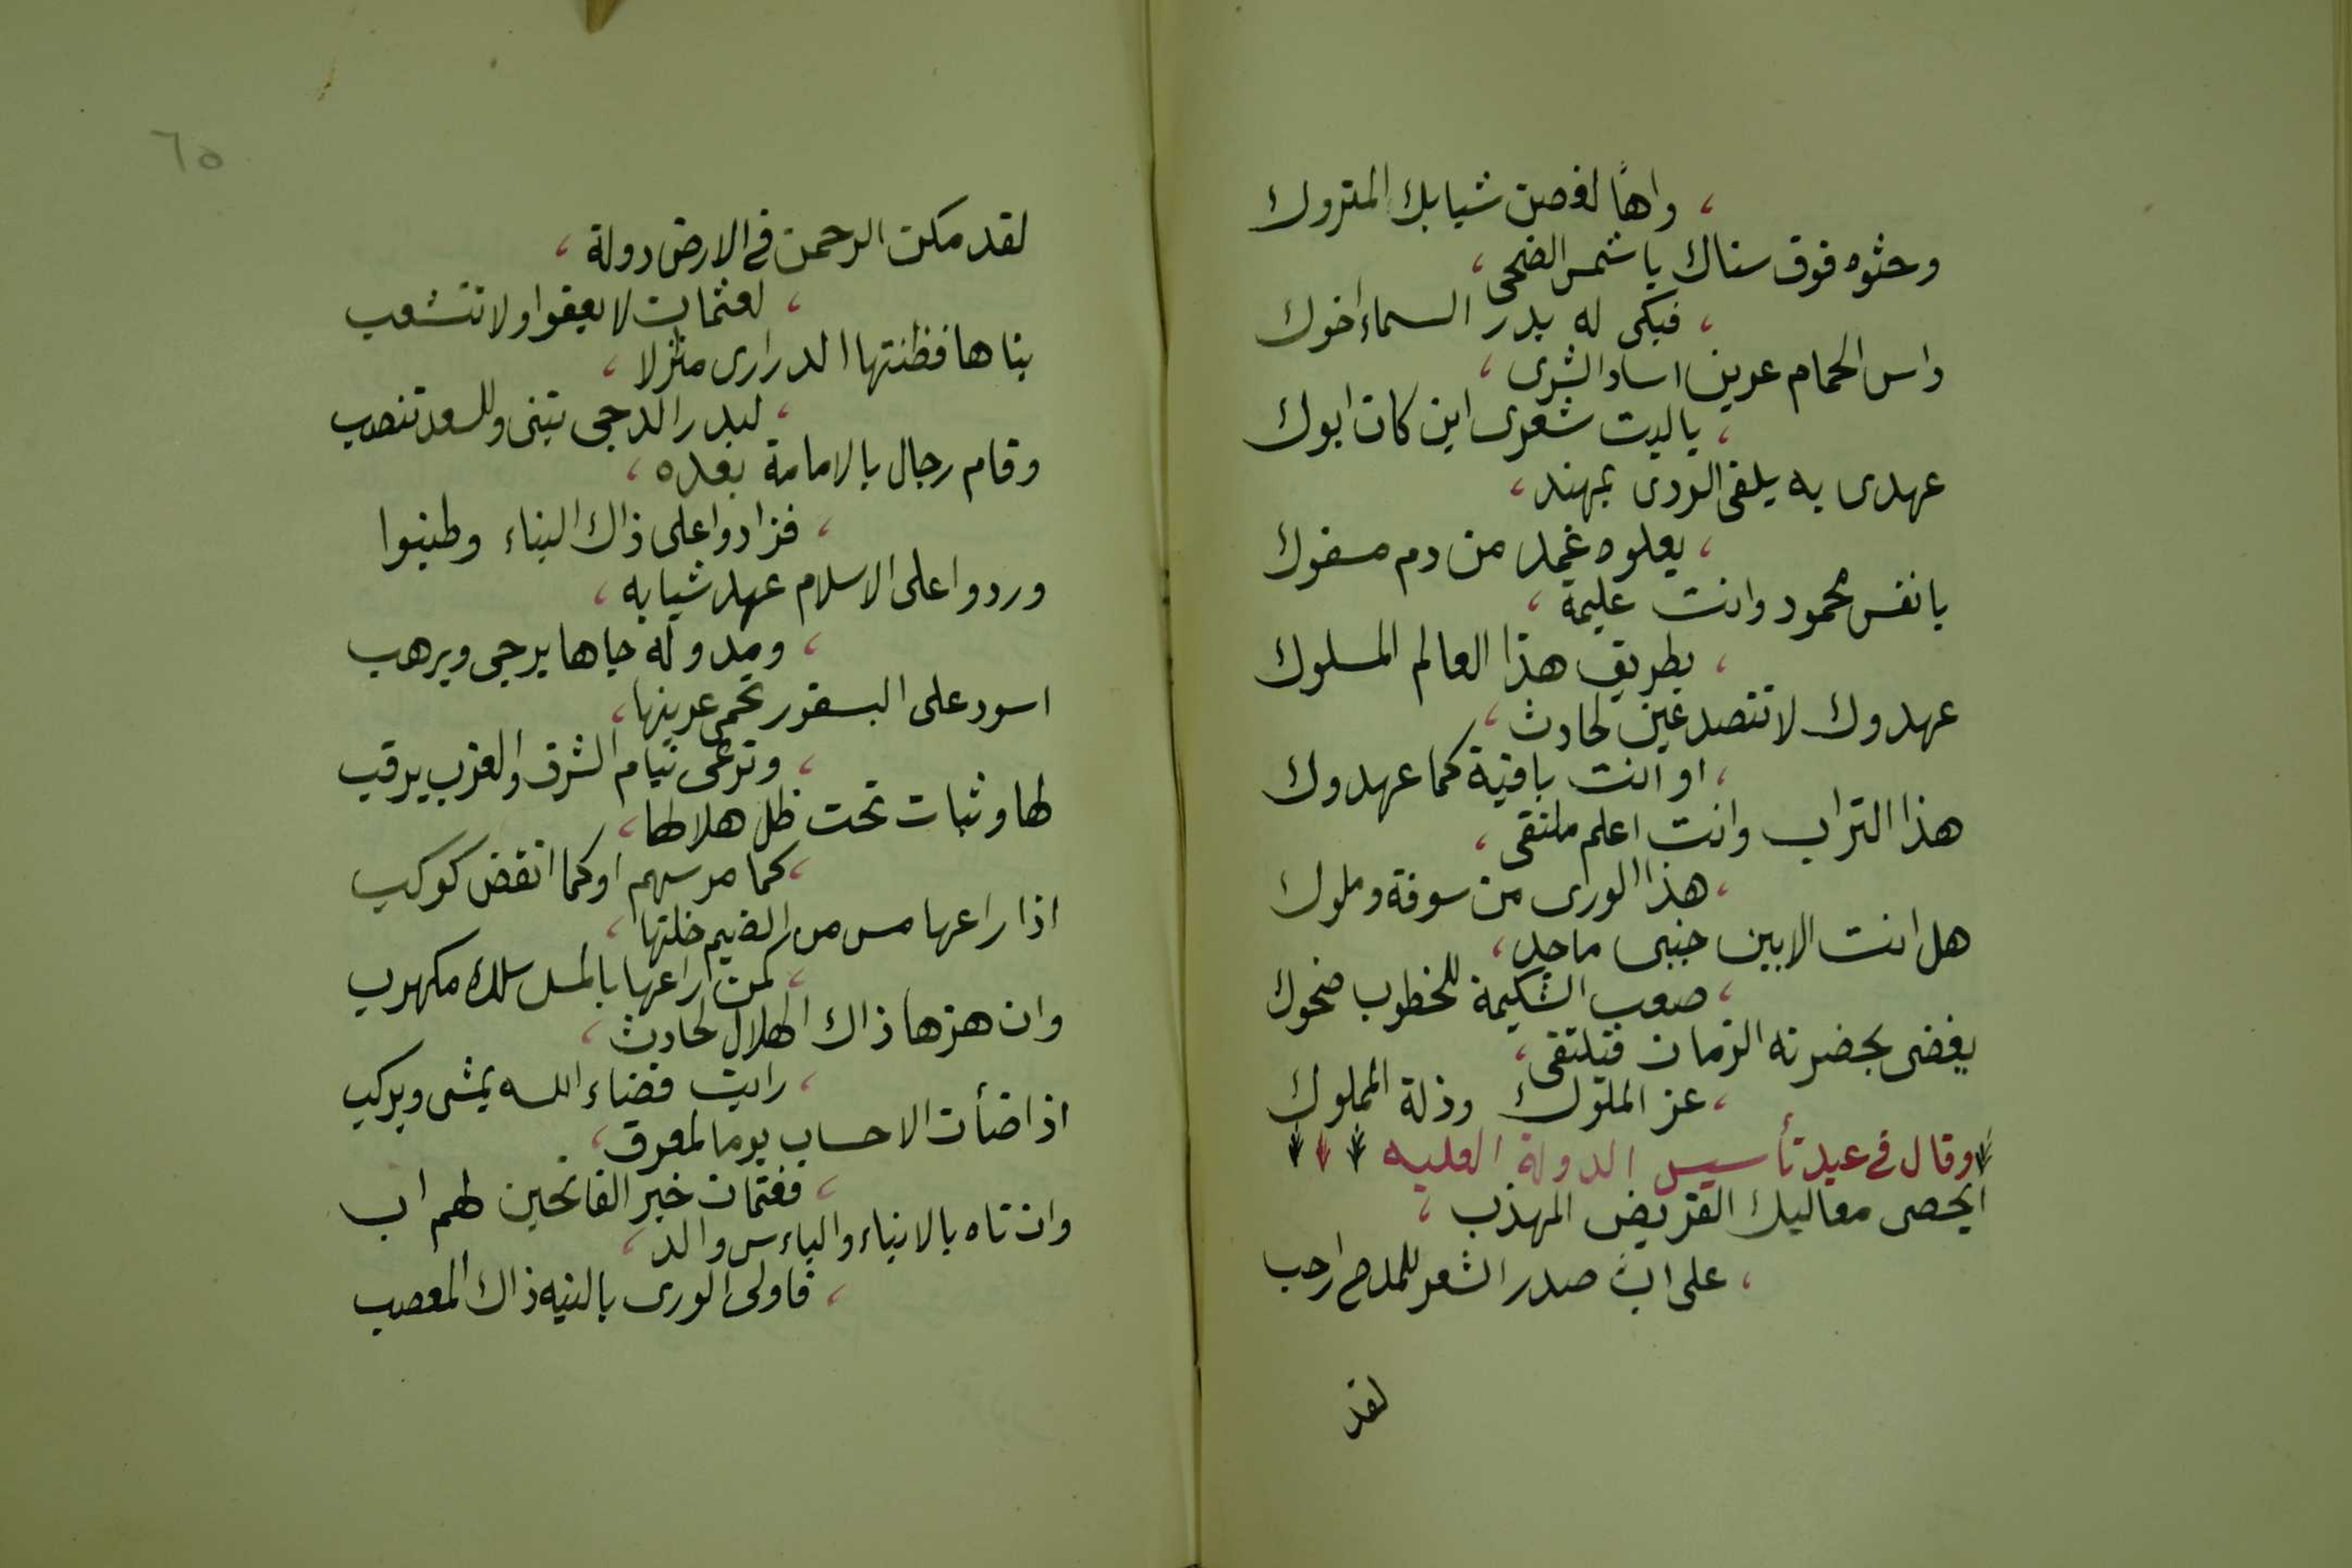 ، واهًا لغصن شبابك المتروك
وحثوه فوق سناك يا شمس الضحى ،
، فبكى له بدر السماء اخوك
داس الحمام عرين اساد الشرى ،
، يا ليت شعرى اين كان ابوك
عهدى به يلقى الردى بمهند ،
، يعلوه غمد من دم مسفوك
يا نفس محمود وانت عليمة ،
، بطريق هذا العالم المسلوك
عهدوك لا تتصدعين لحادث ،
، او انت باقية كما عهدوك
هذا التراب وانت اعلم ملتقى ،
، هذا الورى من سوقة وملوك
هل انت الا بين جنبى ماجد ،
، صعب الشكيمة للخطوب ضحوك
يغضى بحضرته الزمان فيلتقى ،
، عز الملوك وذلة المملوك
وقال فى عيد تأسيس الدولة العليه
ايحصى معاليك القريض المهذب ،
، على ان صدر الشعر للمدح ارحب
لقد
٦٥
لقد مكن الرحمن فى الارض دولة ،
، لعثمان لا تعفوا ولا تتشعب
بناها فظنتها الدرارى منزلا ،
، لبدر الدجى يبنى وللسعد تنصب
وقام رجال بالامامة بعده ،
، فزادوا على ذاك البناء وطنبوا
وردوا على الاسلام عهد شبابه ،
، ومدو له جاها يرجى ويرهب
اسود على البسفور تحمى عرينها ،
، وترعى نيام الشرق والغرب يرقب
لها وثبات تحت ظل هلالها ،
، كما مر سهم او كما انقض كوكب
اذا راعها مس من الضيم خلتها ،
، كمن راعها بالمس سلك مكهرب
وان هزها ذاك الهلال لحادث ،
، رايت قضاء الله يمشى ويركب
اذا ضأت الاحساب يوما لمعرق ،
، فعثمان خير الفاتحين لهم اب
وان تاه بالابناء والباءس والد ،
، فاولى الورى بالتيه ذاك المعصب